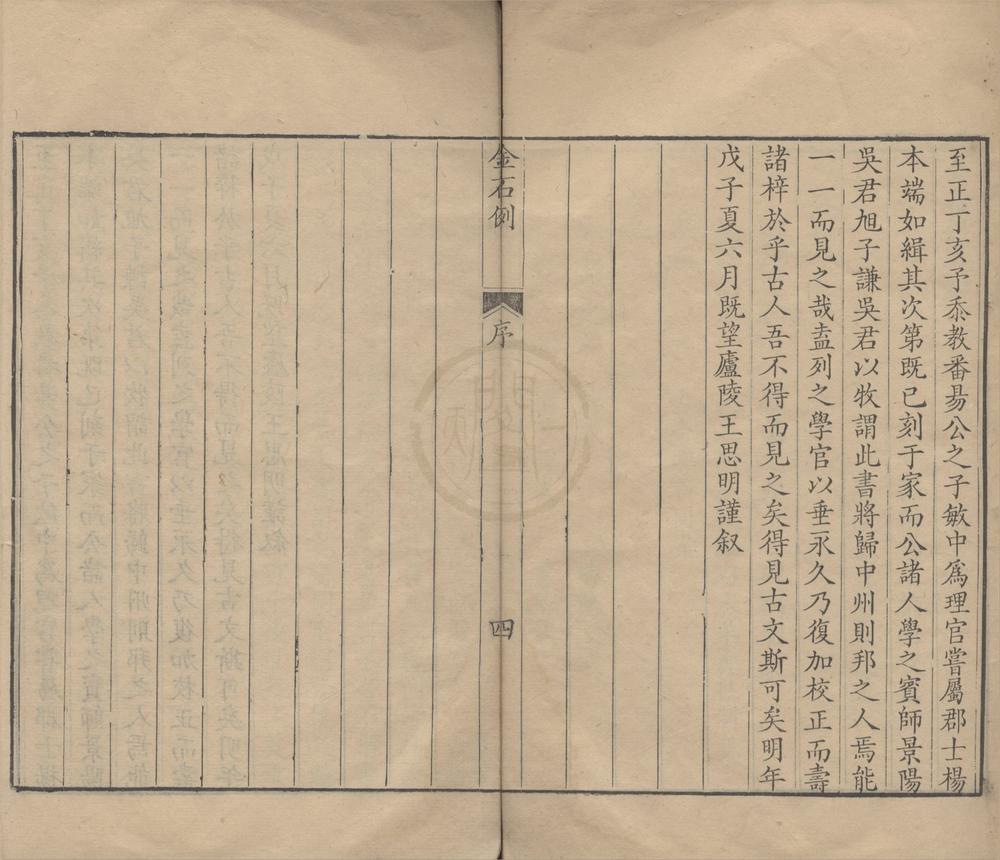 至正丁亥予忝教番昜公之子敏中爲理官嘗屬郡士楊
本端如緝其次第既已刻于家而公諸人學之賓師景陽
吳君旭子謙吳君以牧謂此書將歸中州則邦之人焉能
一一而見之哉盍列之學官以垂永久乃復加校正而壽
諸梓於乎古人吾不得而見之矣得見古文斯可矣明年
戊子夏六月既望廬陵王思明謹叙
金石例
序
四